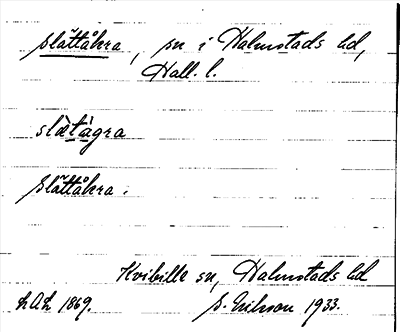 Slättåkra, sn i Halmstads hd,
Hall. l.
slætågra
Slättåkra.
Kvibille sn, Halmstads hd
h.A.h. 1869. S. Erikson 1933.